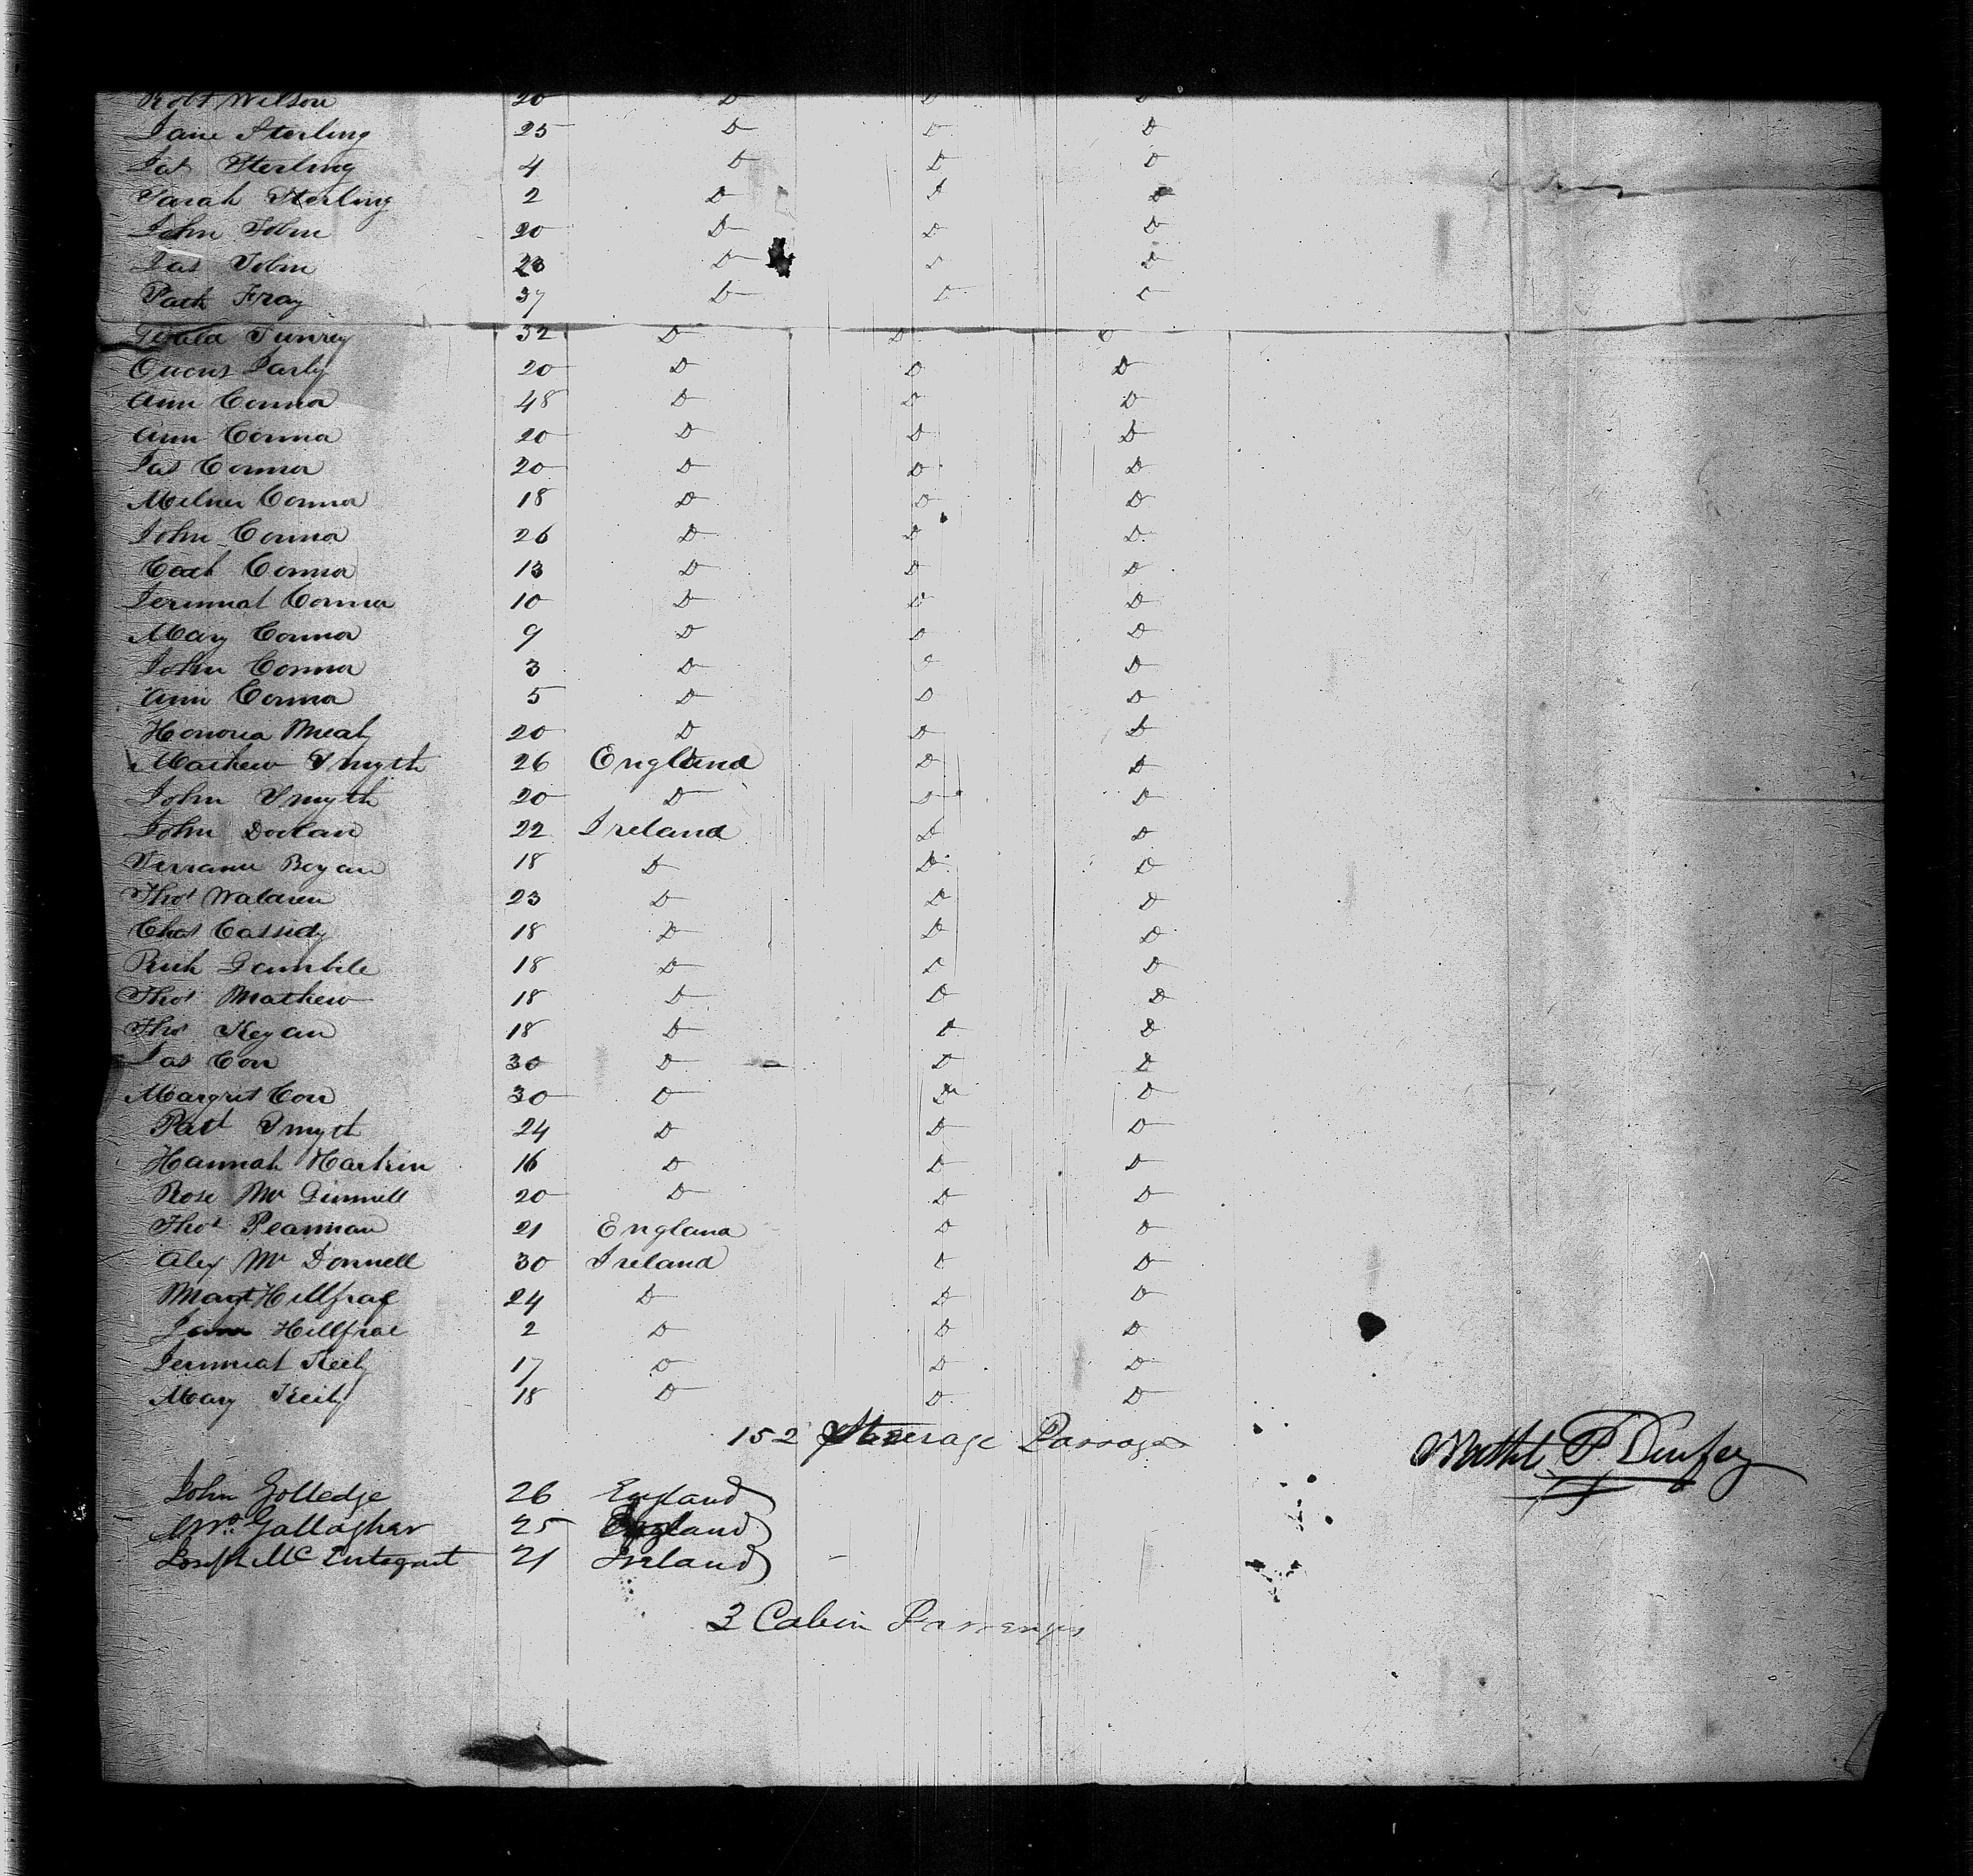 Robt Wilson 20 D D D
Jane Sterling 25 D D D
Jas Sterling 4 D D D
Sarah Sterling 2 D D D
John Tobin 20 D D D
Jas Tobin 23 D D D
Patk Fray 37 D D
32 D D D
Owens 20 D D D
Ann Connor 48 D D D
Ann Connor 20 D D D
Jas Connor 20 D D D
Connor 18 D D D
John Connor 26 D D D
Cath Connor 13 D D D
Jerimiat Connor 10 D D D
Mary Connor 9 D D D
John Connor 3 D D D
Ann Connor 5 D D D
Honoria 20 D D D
Mathew Smyth 26 England D D
John Smyth 20 D D D
John Doolan 22 Ireland D D
18 D D D
Thos 23 D D D
Chas Cassidy 18 D D D
18 D D D
Thos Mathew 18 D D D
Thos Kegan 18 D D D
Jas Corr 30 D D D
Margret Corr 30 D D D
Patt Smyth 24 D D D
Hannah Harkin 16 D D D
Rose Mc 20 D D D
Thos Pearman 21 England D D
Alex Mc Donnell 30 Ireland D D
Margt Hillfrae 24 D D D
Hillfrae 2 D D D
Jerimiat Keily 17 D D D
Mary Keily 18 D D D
152 Steerage Passages
John Golledge 26 England
Mrs. Gallagher 25 England
Joseph Mc Entegart 21 Ireland
3 Cabin Passengers